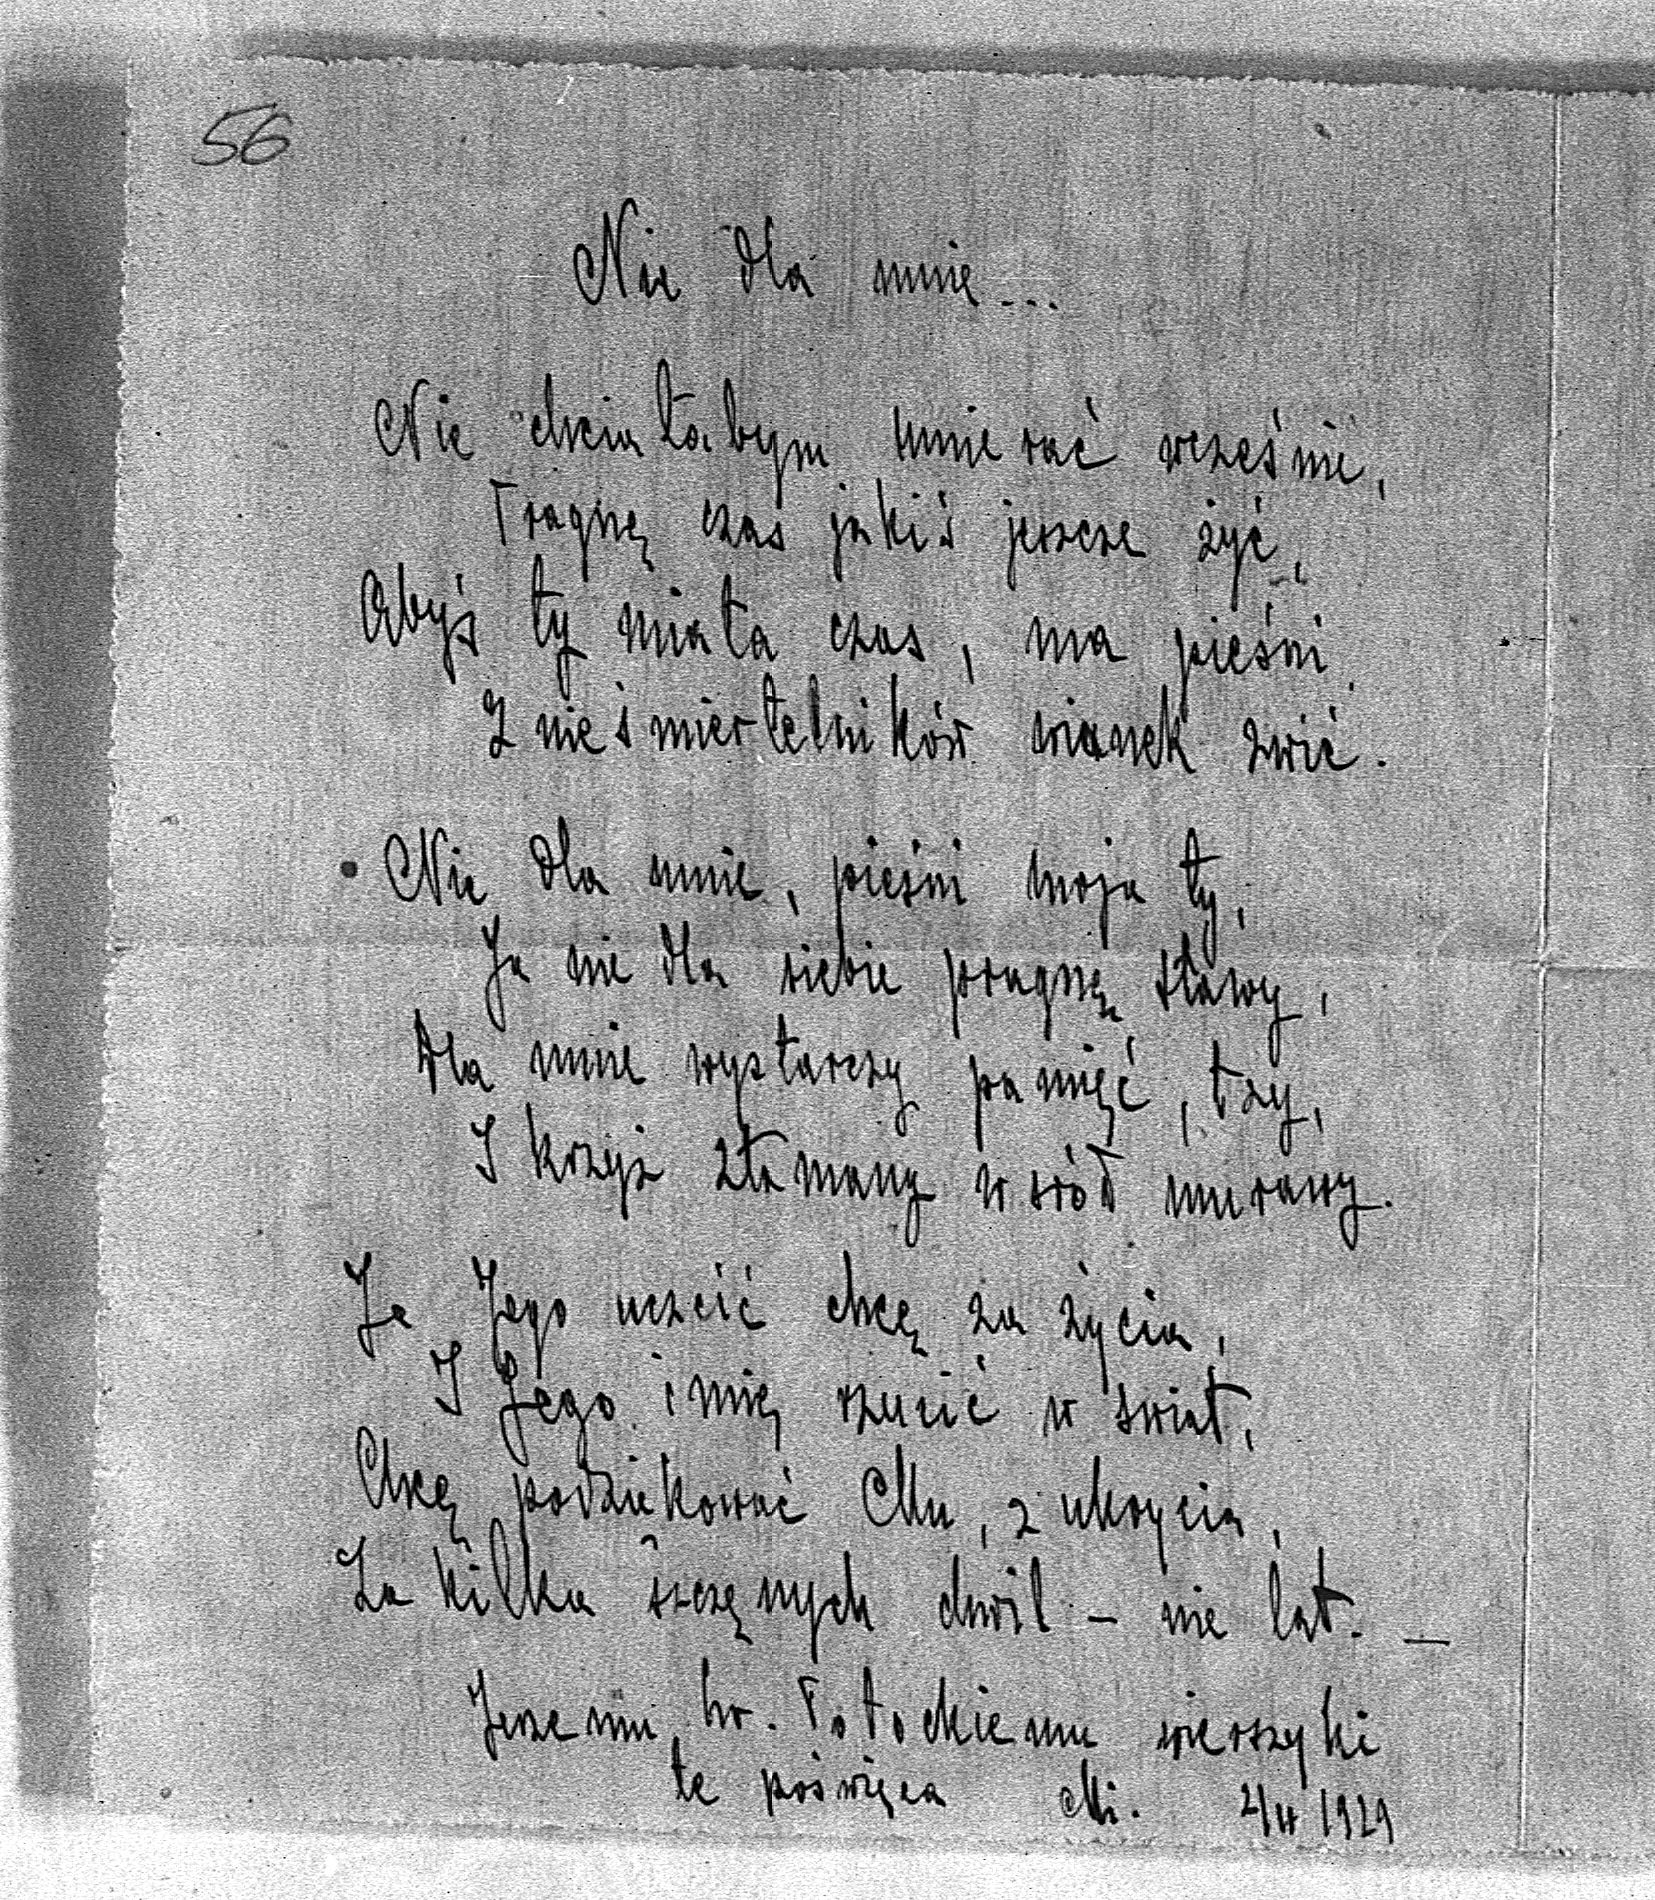 56
Nie dla mnie...
Nie chciałabym umierać wcześnie,
Pragnę czas jakiś jeszcze żyć,
Abyś ty miała czas, ma pieśni
Z nieśmiertelników wianek zwić.
Nie dla mnie, pieśni moja ty,
Ja nie dla siebie pragnę sławy,
Dla mnie wystarczy pamięć, łzy,
I krzyż złamany wśród murawy.
Ja Jego uczcić chcę za życia,
I Jego imię rzucić w świat,
Chcę podziękować Mu, z ukrycia,
Za kilka szczęsnych chwil – nie lat. –
Jerzemu hr. Potockiemu wierszyki
te poświęca Mi. 2/II 1929